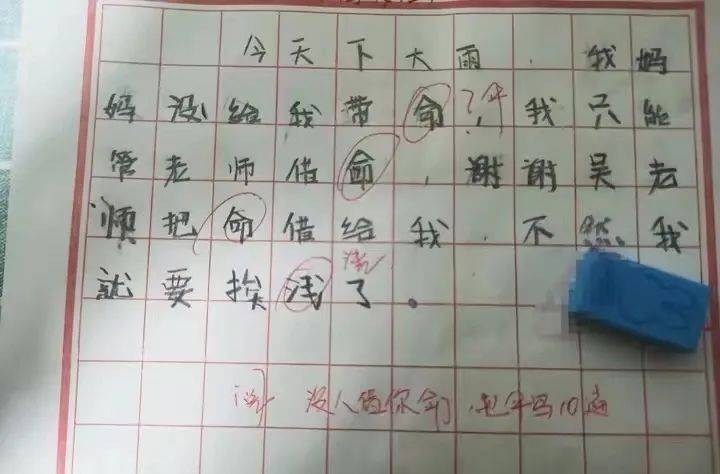 今天下大雨，我妈
妈没给我带命，我只能
管老师借命，谢谢吴老
师把命借给我，不然我
就要挨浅了。
没人借你命！
10遍